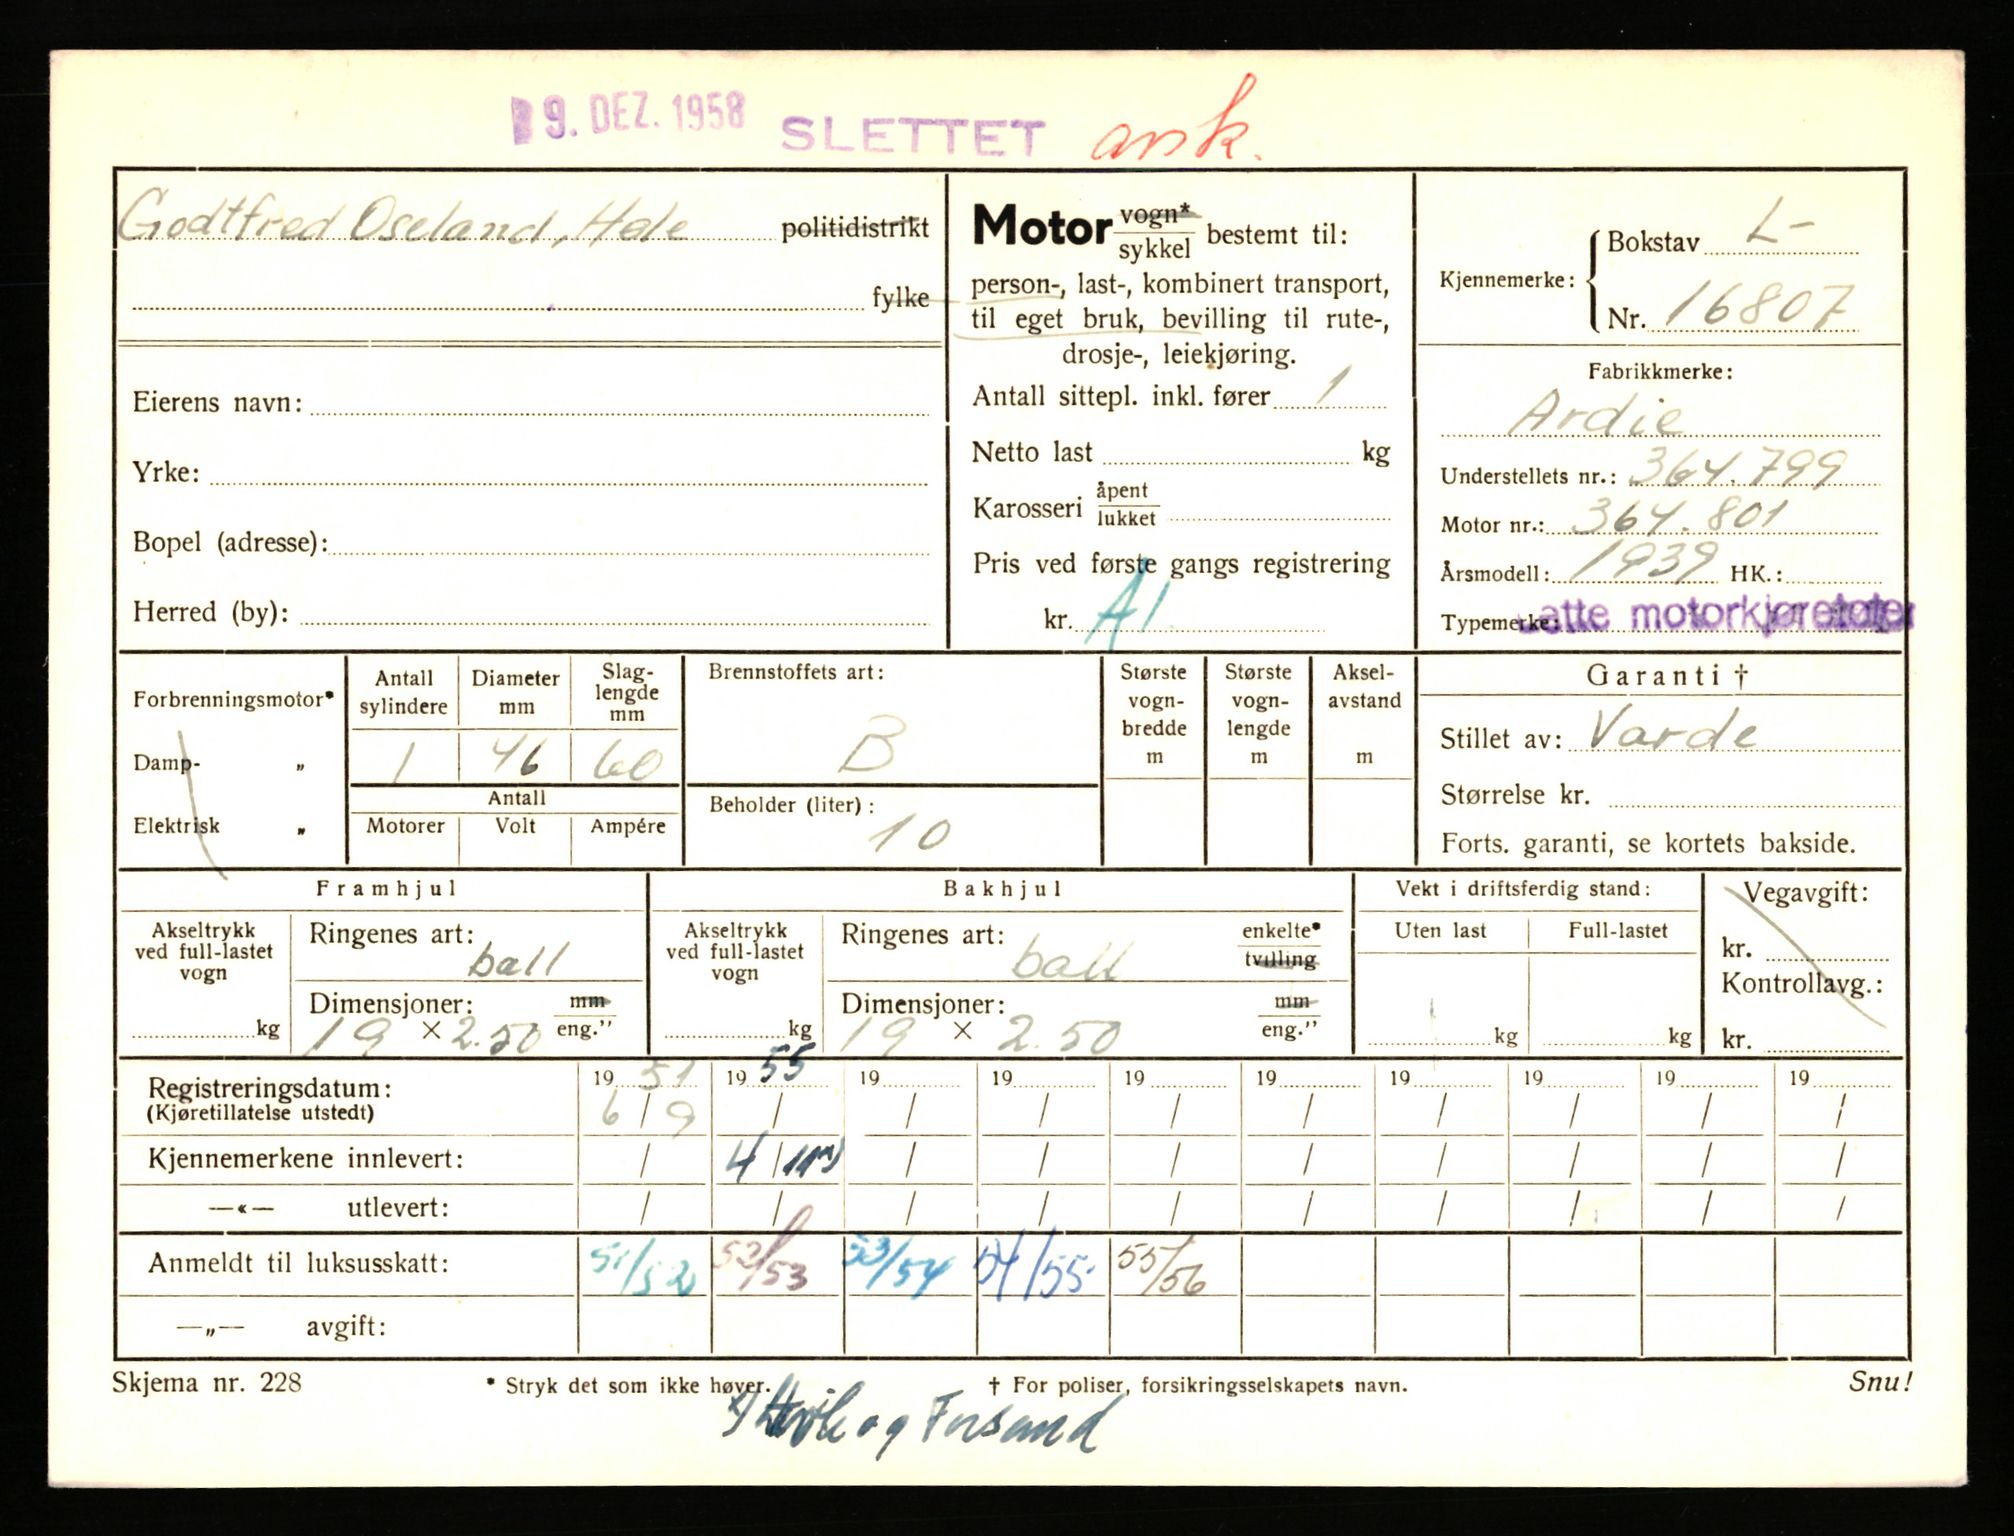 9. DEZ. 1958 SLETTET
Godtfred Oseland, Hele politidistrikt
fylke
Eierens navn:
Yrke:
Bopel (adresse):
Herred (by):
Motor vogn*
sykkel bestemt til:
person-, last-, kombinert transport,
til eget bruk, bevilling til rute-,
drosje-, leiekjøring.
Antall sittepl. inkl. fører 1
Netto last kg
Karosseri åpent
lukket
Pris ved første gangs registrering
kr. A1.
Kjennemerke: Bokstav L-
Nr. 16807
Fabrikkmerke:
Ardie
Understellets nr.: 364.799
Motor nr.: 364.801
Årsmodell: 1939 HK.:
Typemerke: Latte motorkjøretøter
Forbrenningsmotor*
Damp- „
Elektrisk „
Antall sylindere Diameter mm Slaglengde mm
1 46 60
Antall
Motorer Volt Ampére
Brennstoffets art:
B
Beholder (liter):
10
Største vognbredde m
Største vognlengde m
Akselavstand m
Garanti †
Stillet av: Varde
Størrelse kr.
Forts. garanti, se kortets bakside.
Framhjul
Akseltrykk ved full-lastet vogn
kg
Ringenes art:
ball
Dimensjoner: mm
19 × 2.50 eng.”
Bakhjul
Akseltrykk ved full-lastet vogn
kg
Ringenes art: enkelte*
ball tvilling
Dimensjoner: mm
19 × 2.50 eng.”
Vekt i driftsferdig stand:
Uten last Full-lastet
kg kg
Vegavgift:
kr.
Kontrollavg.:
kr.
Registreringsdatum: 19 51 19 55 19 19 19 19 19 19 19 19
(Kjøretillatelse utstedt) 6/9 / / / / / / / / /
Kjennemerkene innlevert: / 4/11 / / / / / / / /
—«— utlevert: / / / / / / / / / /
Anmeldt til luksusskatt: 51/52 52/53 53/54 54/55 55/56
—„— avgift:
Skjema nr. 228 * Stryk det som ikke høver. † For poliser, forsikringsselskapets navn. Snu!
og Forsand